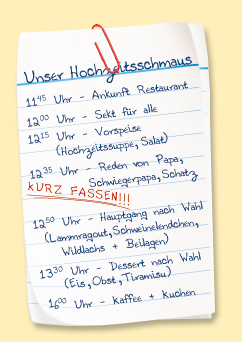 Unser Hochzeitsschmaus
11⁴⁵ Uhr - Ankunft Restaurant
12⁰⁰ Uhr - Sekt für alle
12¹⁵ Uhr - Vorspeise
(Hochzeitssuppe, Salat)
12³⁵ Uhr - Reden von Papa,
Schwiegerpapa, Schatz
KURZ FASSEN!!!
12⁵⁰ Uhr - Hauptgang nach Wahl
(Lammragout, Schweinelendchen,
Wildlachs + Beilagen)
13³⁰ Uhr - Dessert nach Wahl
(Eis, Obst, Tiramisu)
16⁰⁰ Uhr - Kaffee + Kuchen